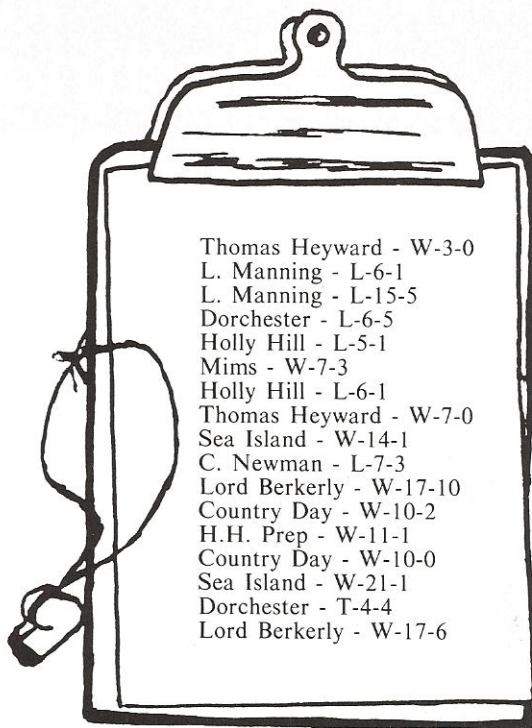 Thomas Heyward - W-3-0
L. Manning - L-6-1
L. Manning - L-15-5
Dorchester - L-6-5
Holly Hill - L-5-1
Mims - W-7-3
Holly Hill - L-6-1
Thomas Heyward - W-7-0
Sea Island - W-14-1
C. Newman - L-7-3
Lord Berkerly - W-17-10
Country Day - W-10-2
H.H. Prep - W-11-1
Country Day - W-10-0
Sea Island - W-21-1
Dorchester - T-4-4
Lord Berkerly - W-17-6